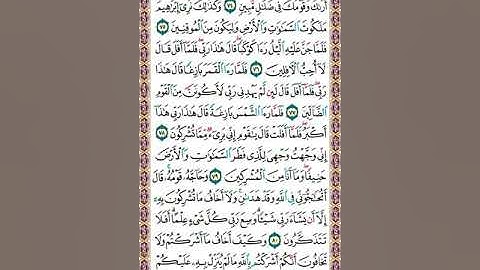 أَرَىٰكَ وَقَوْمَكَ فِى ضَلَٰلٍ مُّبِينٍ ٧٤ وَكَذَٰلِكَ نُرِىٓ إِبْرَٰهِيمَ
مَلَكُوتَ ٱلسَّمَٰوَٰتِ وَٱلْأَرْضِ وَلِيَكُونَ مِنَ ٱلْمُوقِنِينَ ٧٥
فَلَمَّا جَنَّ عَلَيْهِ ٱلَّيْلُ رَءَا كَوْكَبًا قَالَ هَٰذَا رَبِّى فَلَمَّآ أَفَلَ قَالَ
لَآ أُحِبُّ ٱلْءَافِلِينَ ٧٦ فَلَمَّا رَءَا ٱلْقَمَرَ بَازِغًا قَالَ هَٰذَا
رَبِّى فَلَمَّآ أَفَلَ قَالَ لَئِن لَّمْ يَهْدِنِى رَبِّى لَأَكُونَنَّ مِنَ ٱلْقَوْمِ
ٱلضَّآلِّينَ ٧٧ فَلَمَّا رَءَا ٱلشَّمْسَ بَازِغَةً قَالَ هَٰذَا رَبِّى هَٰذَآ
أَكْبَرُ فَلَمَّآ أَفَلَتْ قَالَ يَٰقَوْمِ إِنِّى بَرِىٓءٌ مِّمَّا تُشْرِكُونَ ٧٨
إِنِّى وَجَّهْتُ وَجْهِىَ لِلَّذِى فَطَرَ ٱلسَّمَٰوَٰتِ وَٱلْأَرْضَ
حَنِيفًا وَمَآ أَنَا۠ مِنَ ٱلْمُشْرِكِينَ ٧٩ وَحَآجَّهُۥ قَوْمُهُۥ قَالَ
أَتُحَٰٓجُّوٓنِّى فِى ٱللَّهِ وَقَدْ هَدَىٰنِ وَلَآ أَخَافُ مَا تُشْرِكُونَ بِهِۦٓ
إِلَّآ أَن يَشَآءَ رَبِّى شَيْـًٔا وَسِعَ رَبِّى كُلَّ شَىْءٍ عِلْمًا أَفَلَا
تَتَذَكَّرُونَ ٨٠ وَكَيْفَ أَخَافُ مَآ أَشْرَكْتُمْ وَلَا
تَخَافُونَ أَنَّكُمْ أَشْرَكْتُم بِٱللَّهِ مَا لَمْ يُنَزِّلْ بِهِۦ عَلَيْكُمْ